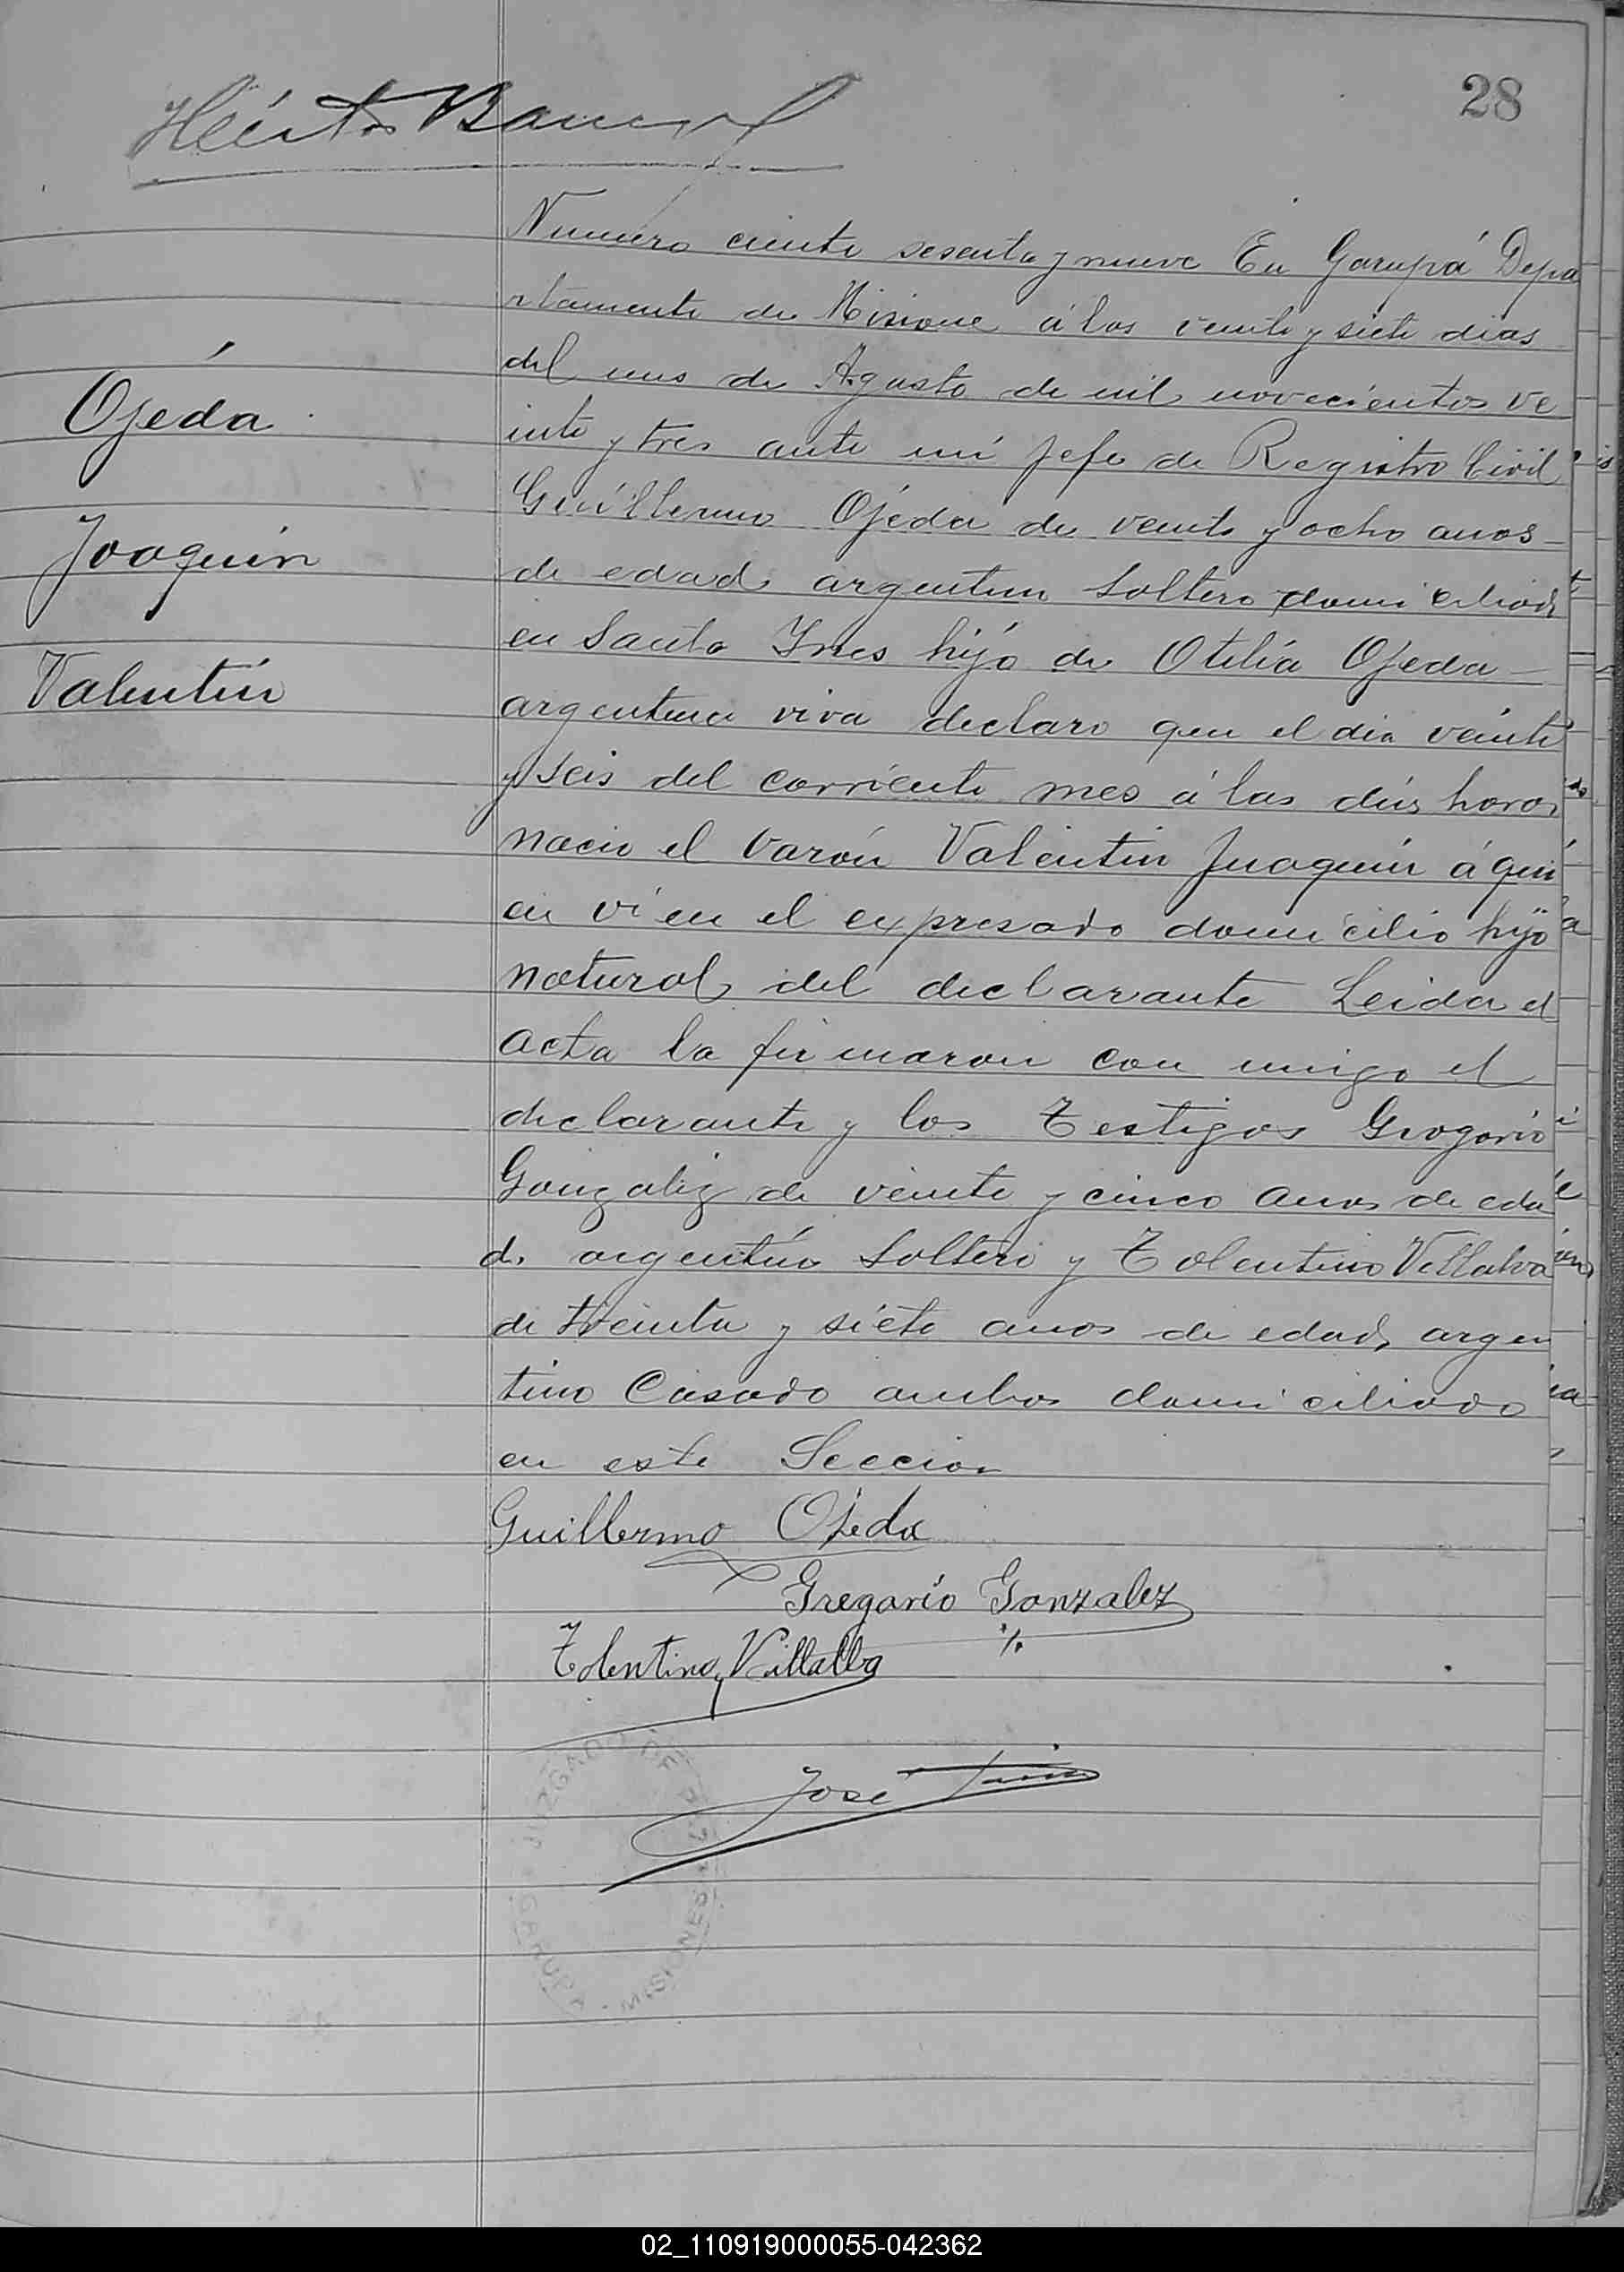 28
Numero ciento sesenta y nueve En Garupá Depa
rtamento de Misione á los veinte y siete dias
del mes de Agosto de mil novecientos ve
inte y tres ante mi Jefe de Registro Civil
Ojeda
Guillermo Ojeda de veinte y ocho anos
Joaquin
de edad argentino Soltero domiciliado
en Santa Ynes hijo de Otilia Ojeda
Valentin
argentina viva declaro que el dia veinte
y seis del corriente mes á las horas
nacio el varón Valentin Juaquin á qui
en vi en el expresado domicilio hijo
natural del declarante Leida el
acta la firmaron con migo el
declarante y los Testigos Grogorio
Gonzalez de veinte y cinco anos de eda
d. argentino Soltero y Tolentino Villalva
de treinta y siete anos de edad, argen
tino Casado ambos domiciliado
en este Seccion
Guillermo Ojeda
Gregorio Gonzalez
Tolentino Villalba
José
JUZGADO DE PAZ
GARUPA - MISIONES
02_110919000055-042362